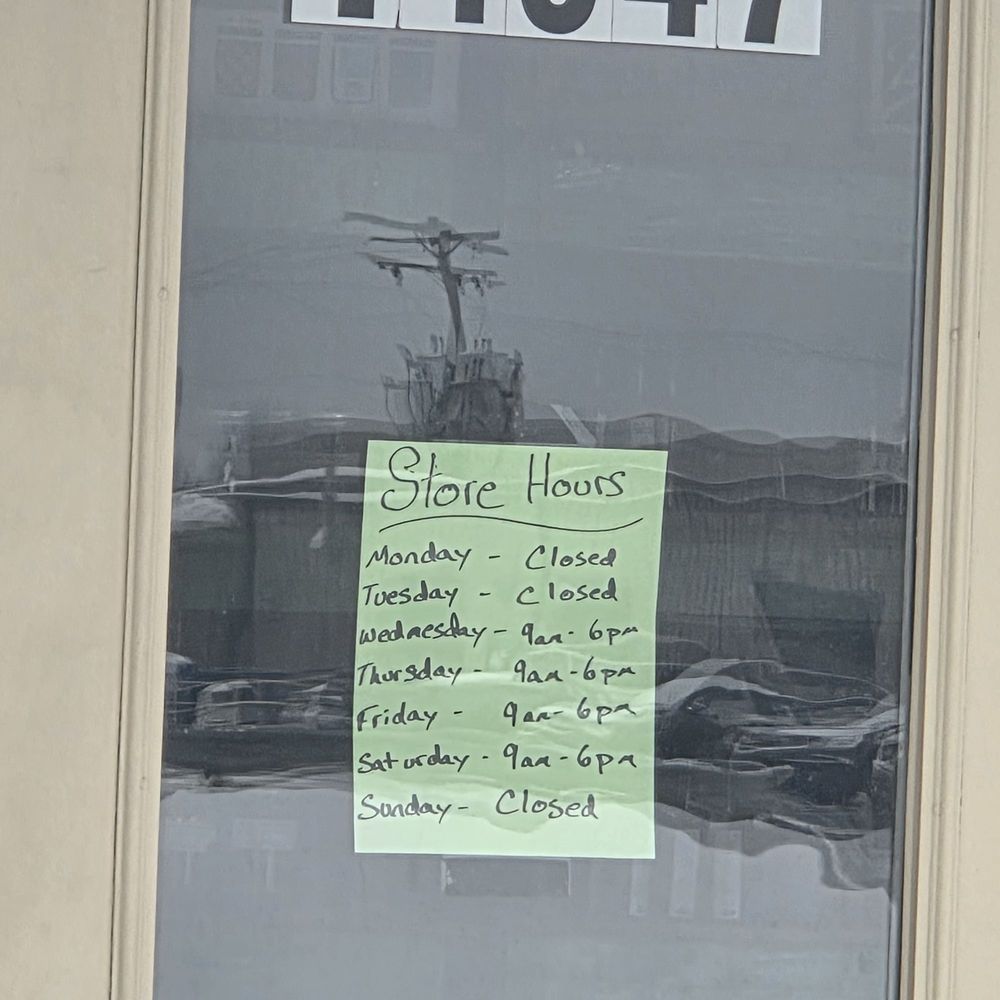 Store Hours
Monday - Closed
Tuesday - Closed
Wednesday - 9am - 6pm
Thursday - 9am - 6pm
Friday - 9am - 6pm
Saturday - 9am - 6pm
Sunday - Closed